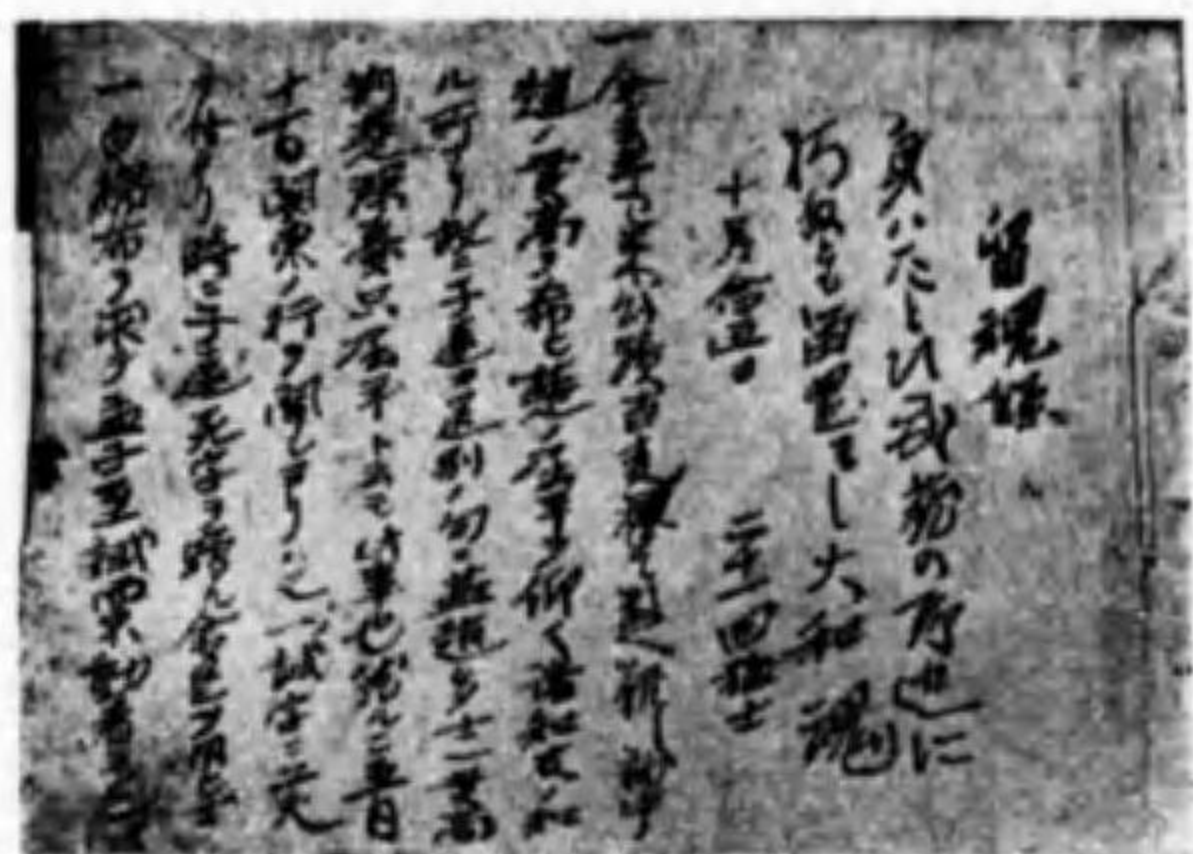 留魂録
身ハたとひ武蔵の野辺に
朽ぬとも留置まし大和魂
十月念五日 二十一回猛士
一余去年已来心蹟百変挙て数へ難し就中
趙ノ貫高ヲ希ヒ楚ノ屈平ヲ仰ク諸知友ノ知
ル所ナリ故ニ子遠カ送別ノ句ニ燕趙多士一貫高
荊楚深憂只屈平ト云モ此事也然ルニ五月
十一日関東ノ行ヲ聞シヨリハ又一ノ誠字ニ工夫
ヲ付タリ時ニ子遠死字ヲ贈ル余是ヲ用ヒス
一白綿布ヲ求テ孟子至誠而不動者